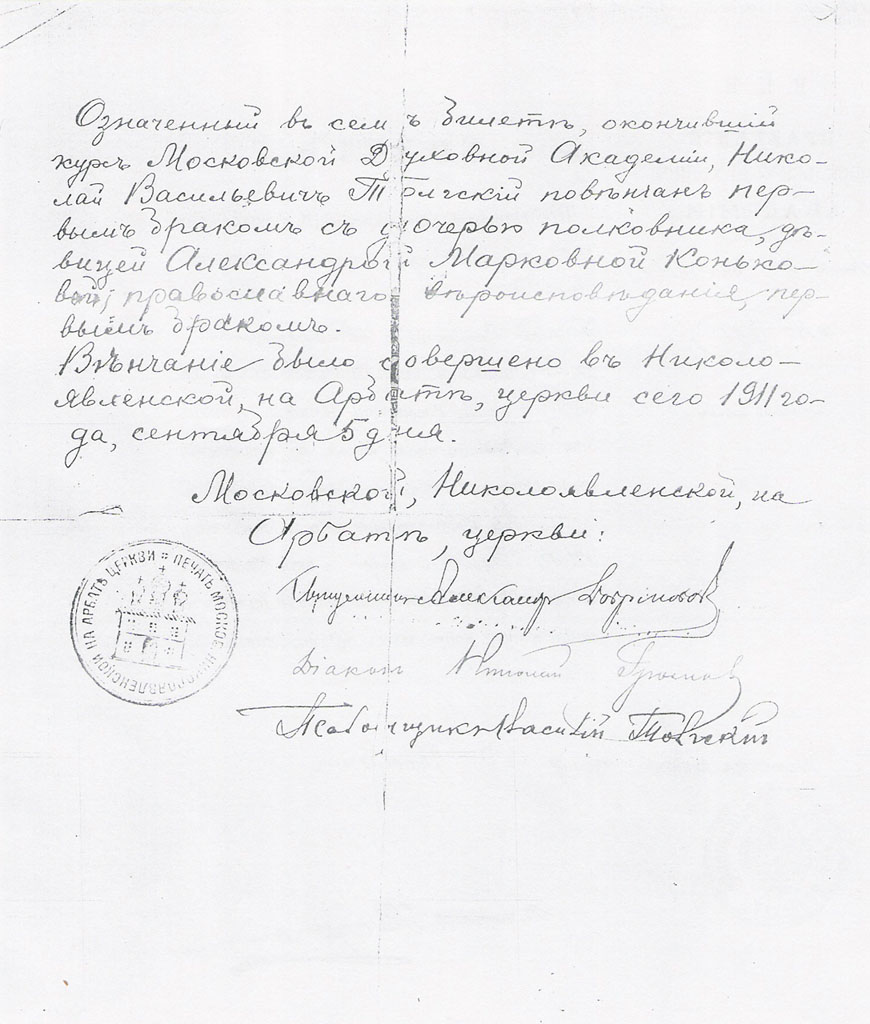 Означенный въ семъ билетѣ, окончившій
курсъ Московской Духовной Академіи, Нико-
лай Васильевичъ Толгскій повѣнчанъ пер-
вымъ бракомъ съ дочерью полковника, дѣ-
вицей Александрой Марковной Конько-
вой, православнаго вѣроисповѣданія, пер-
вымъ бракомъ.
Вѣнчаніе было совершено въ Николо-
явленской, на Арбатѣ, церкви сего 1911 го-
да, сентября 5 дня.
Московской, Николоявленской, на
Арбатѣ, церкви:
Александръ
Діаконъ
Псаломщикъ Василій Толгскій
ПЕЧАТЬ МОСКОВ. НИКОЛАЯВЛЕНСКОЙ НА АРБАТѢ ЦЕРКВИ